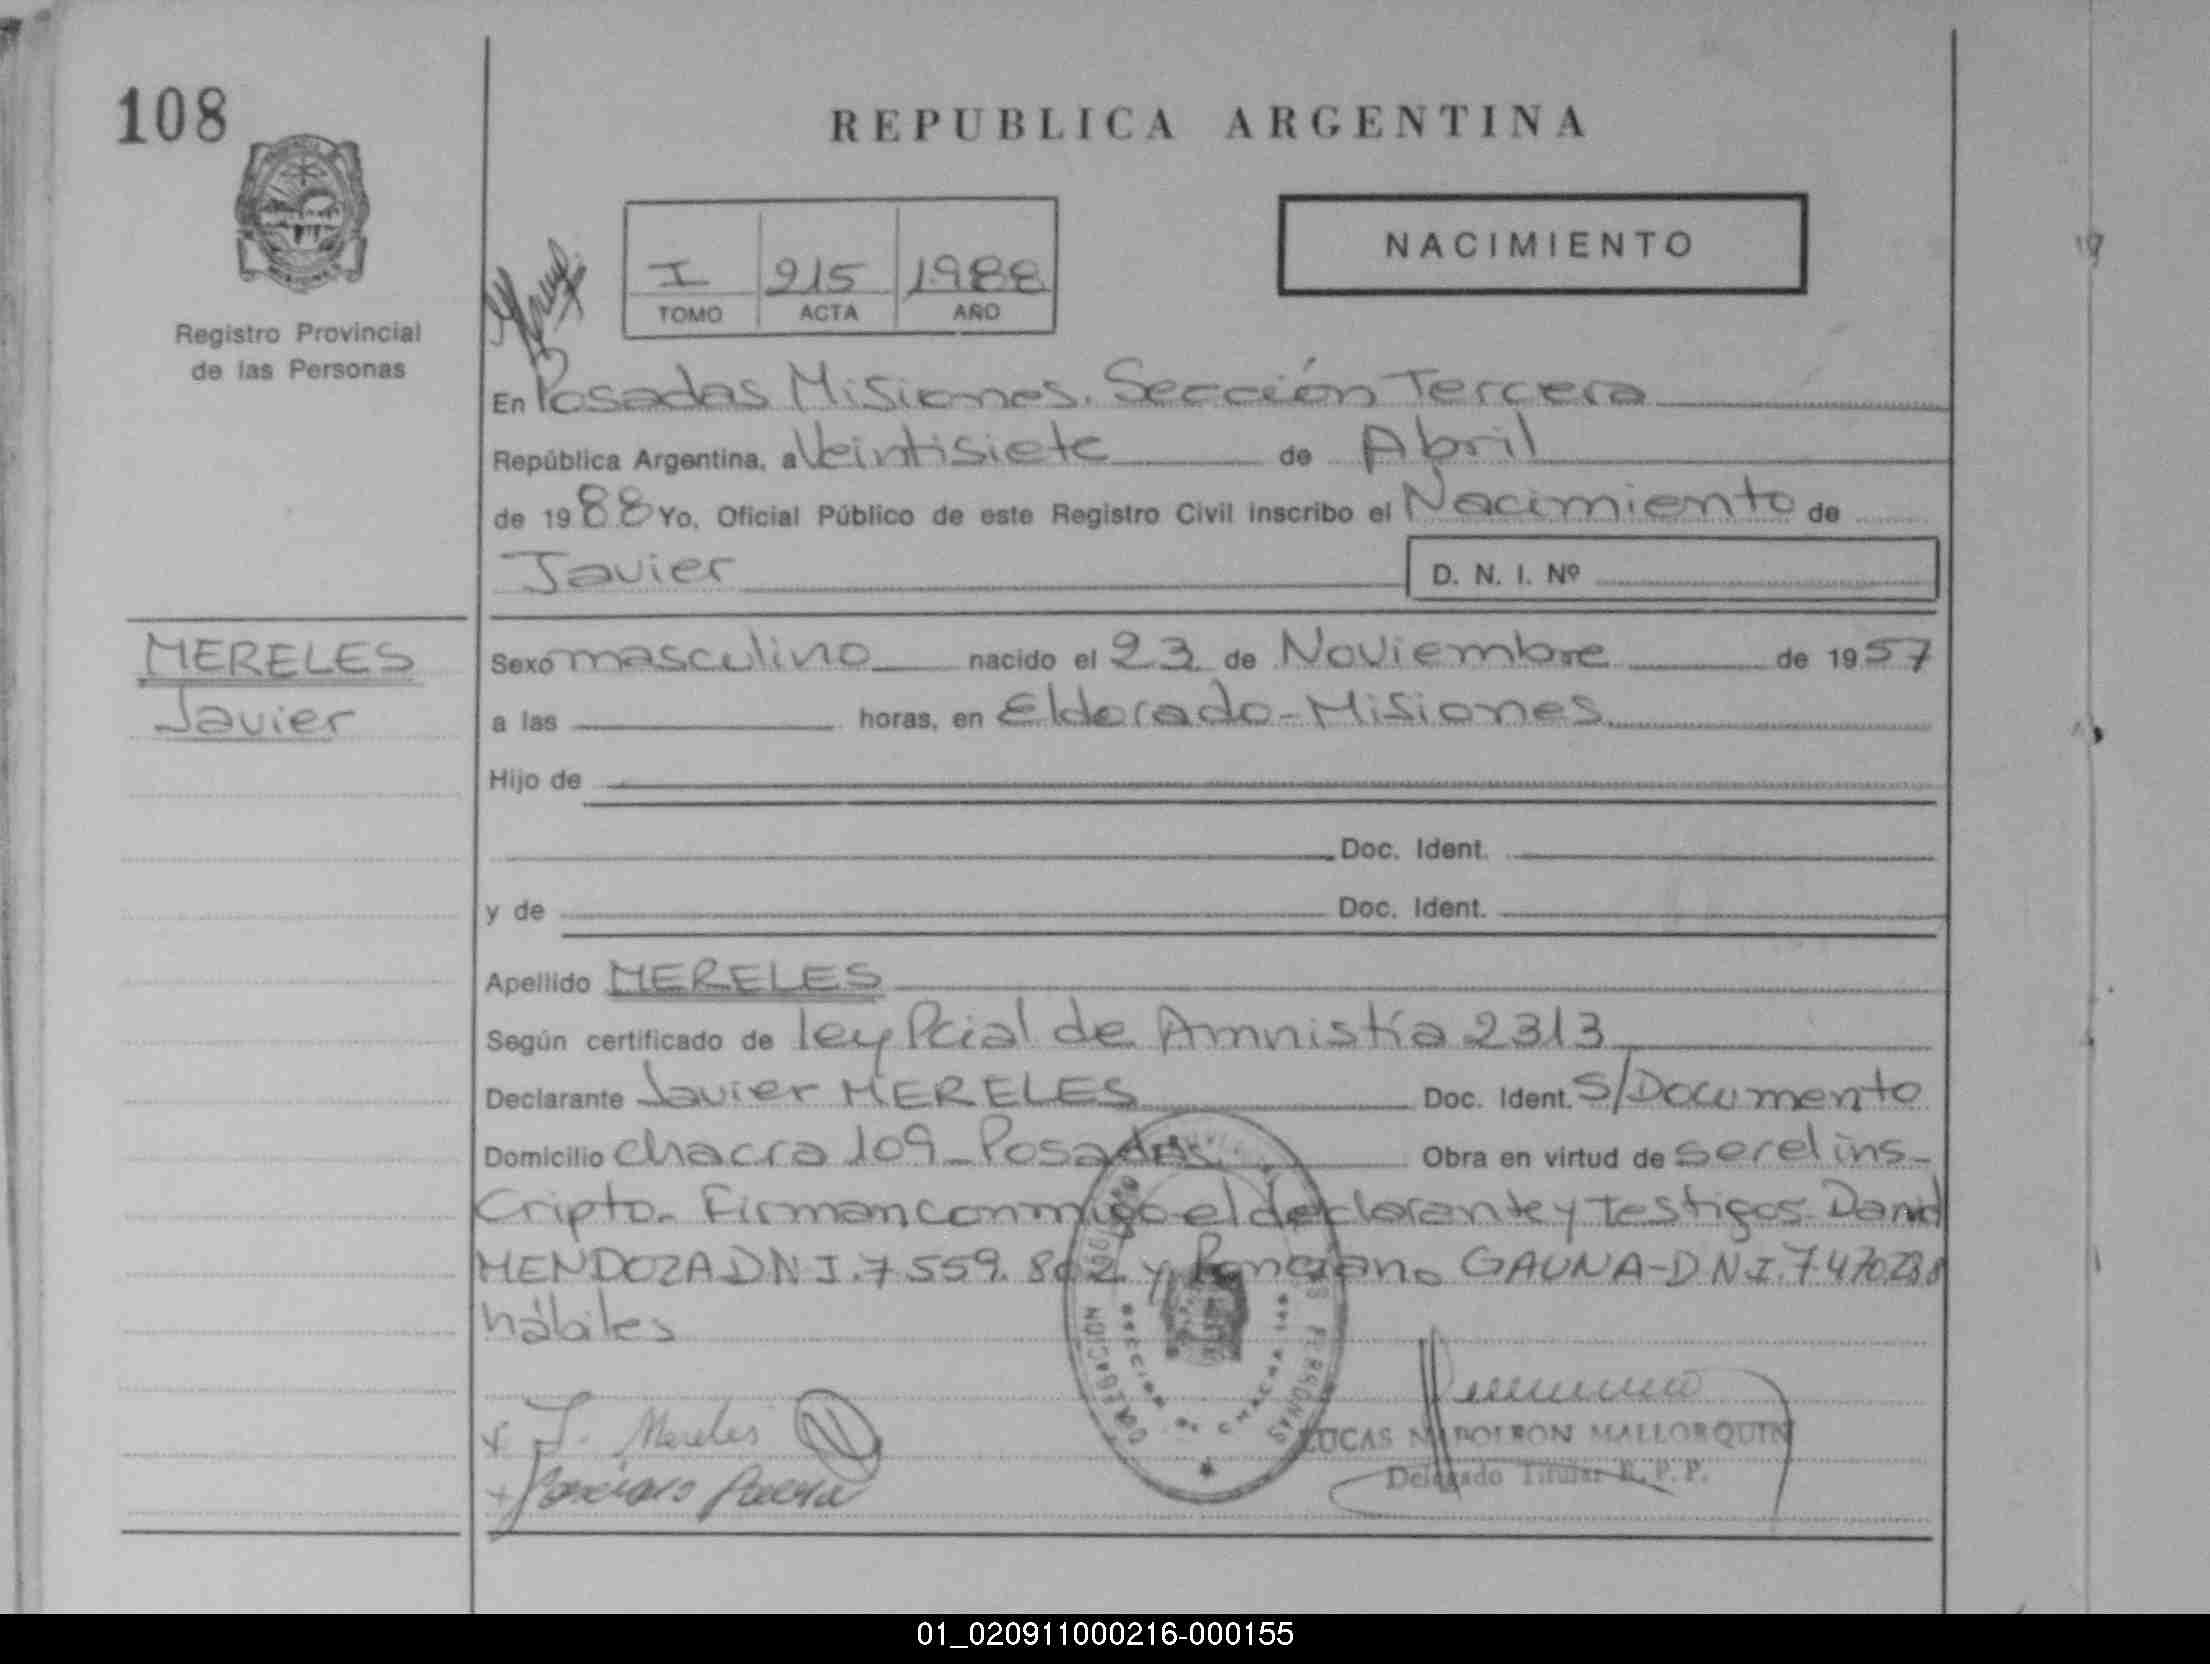 108
REPUBLICA ARGENTINA
I 215 1988
TOMO ACTA AÑO
NACIMIENTO
Registro Provincial
de las Personas
En Posadas Misiones. Sección Tercera
República Argentina, a Veintisiete de Abril
de 1988 Yo, Oficial Público de este Registro Civil inscribo el Nacimiento de
Javier D. N. I. Nº
MERELES
Javier
Sexo masculino nacido el 23 de Noviembre de 1957
a las horas, en Eldorado-Misiones
Hijo de
Doc. Ident.
y de Doc. Ident.
Apellido MERELES
Según certificado de ley Pcial de Amnistía 2313
Declarante Javier MERELES Doc. Ident. S/Documento
Domicilio chacra 109-Posadas Obra en virtud de ser el ins-
cripto. Firman conmigo el declarante y testigos David
MENDOZA DNI. 7559.802 y Ponciano GAUNA-DNI. 7470238
hábiles
J. Mereles
LUCAS NAPOLEON MALLORQUIN
Delegado Titular R. P. P.
DELEGACION
PERSONAS
01_020911000216-000155